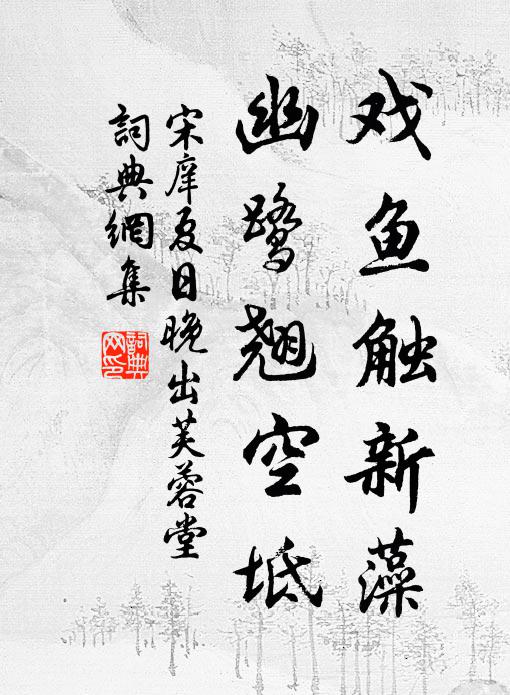 戏鱼触新藻
幽鹭翘空坻
宋庠夏日晚出芙蓉堂
詞典網集
詞典
网印